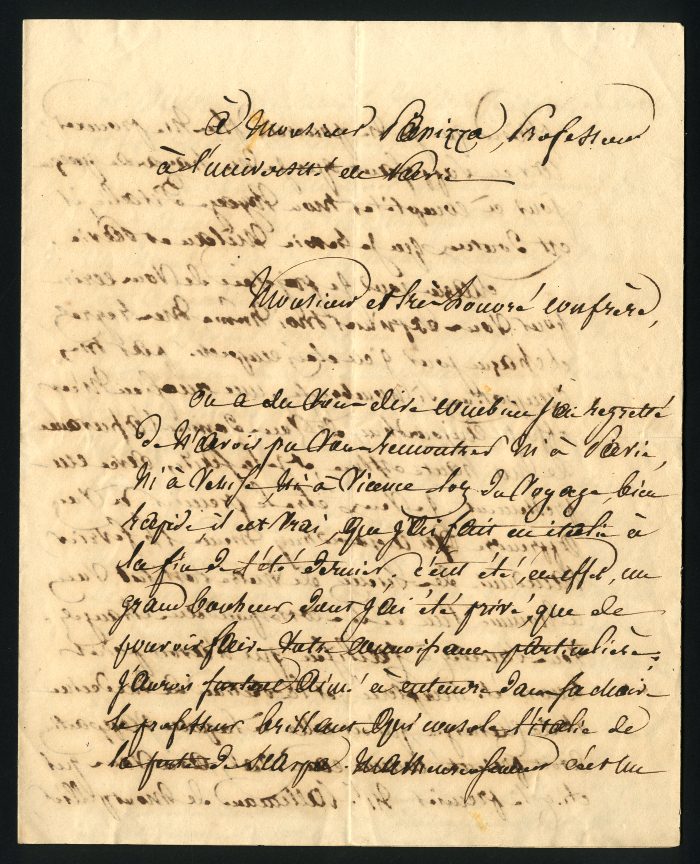 à Monsieur Panizza, Professeur
à l'université de Pavie
Monsieur et très honoré confrère,
on a du vous dire combien j'ai regretté
de n'avoir pu vous rencontrer ni à Pavie,
ni à Venise, ni à Vicence lors du voyage, bien
rapide il est vrai, que j'ai fait en italie à
la fin de l'été dernier. c'eut été, en effet, un
grand bonheur, dont j'ai été privé, que de
pouvoir faire votre connoissance particulière;
j'aurois surtout aimé à entendre dans sa chaire
le professeur brillant qui console l'italie de
la perte de Scarpa. Malheureusement c'est un